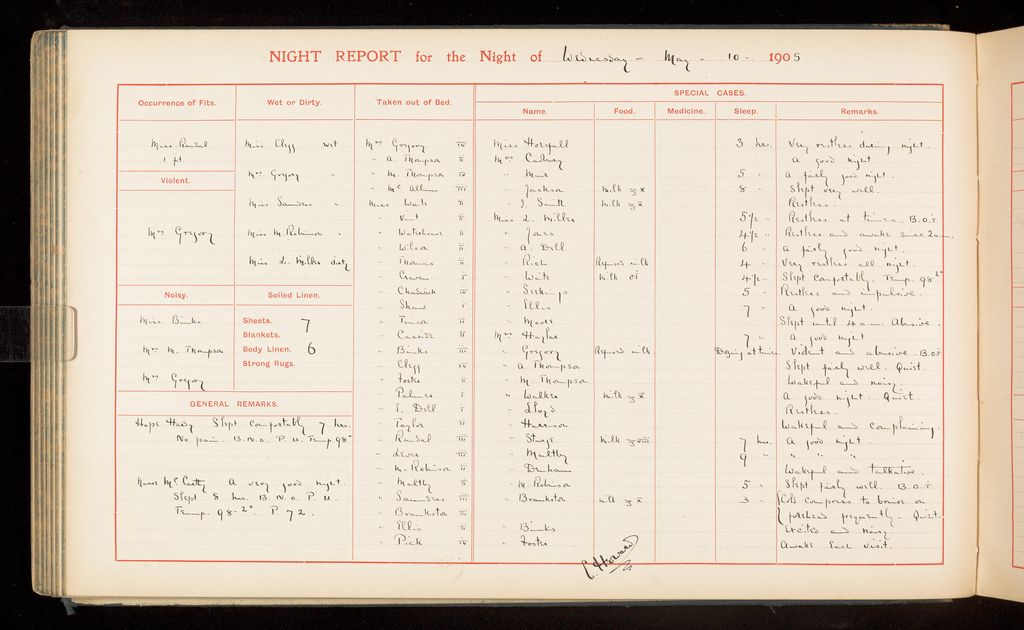 NIGHT REPORT for the Night of Wednesday - May - 10 - 1905
Occurrence of Fits.
Miss Randal
1 ft.
Violent.
Mrs Gregory
Noisy.
Miss Binks
Mrs M. Thompson
Mrs Gregory
Wet or Dirty.
Miss Clegg wet
Mrs Gregory "
Miss Saunders "
Miss M. Robinson "
Miss L. Miller dirty
Soiled Linen.
Sheets. 7
Blankets.
Body Linen. 6
Strong Rugs.
GENERAL REMARKS.
Slept comfortably 7 hrs.
No pain. B.N.O. P.U. Temp. 98
McCarthy A very good night.
Slept 8 hrs. B.N.O. P.U.
Temp. 98.2°. P 72.
Taken out of Bed.
Mrs Gregory iv
" A. Thompson ii
" M. Thompson iv
" McCallum iii
Miss Waits ii
" Vint ii
" Waterhouse i
" Wilson ii
" Thomas ii
" Craven i
" Chadwick iv
" Shaw i
" Firison ii
" Cassidi ii
" Binks iii
" Clegg iv
" Foster ii
" Palmer i
" I. Dell i
" Taylor ii
" Randal iii
" Lever
" M. Robinson ii
" Maltby ii
" Saunders iii
" Brankston ii
" Ellis ii
" Pick iv
SPECIAL CASES.
Name. Food. Medicine. Sleep. Remarks.
Miss Horsfall 3 hrs. Very restless during night.
Mrs Cadney A good night
" Muir 5 " A fairly good night.
" Jackson Milk ℥x 8 " Slept very well.
" J. Smith Milk ℥x Restless.
Miss L. Miller 5½ " Restless at times. B.O.T
" Jones 4½ " Restless and awake since 2 a.m.
" A. Dell 6 " A fairly good night.
" Rich Refused milk 4 " Very restless all night.
" Waits Milk Oi 4½ " Slept comfortably. Temp. 98.2°
" Seekings 5 " Restless and impulsive.
" Ellis 7 " A good night.
" Moores Slept until 4 a.m. Abusive.
Mrs Hayles 7 " A good night
" Gregory Refused milk. Dozing at times. Violent and abusive. B.O.T
" A. Thompson Slept fairly well. Quiet.
" M. Thompson Wakeful and noisy.
" Walker Milk ℥x A good night. Quiet
" Lloyd Restless.
" Harrison Wakeful and complaining.
" Sturge Milk ℥viii 7 hrs. A good night.
" Maltby 9 " " " "
" Denham Wakeful and talkative.
" M. Robinson 5 " Slept fairly well. B.O.T
" Brankston Milk ℥x 3 " Cold compress to bruise on
forehead frequently. Quiet.
" Binks Excited and noisy.
" Foster Awake each visit.
C. Howard